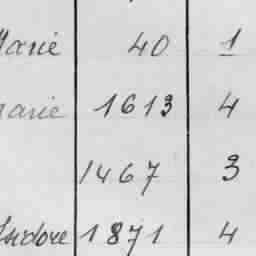 Marie 40 1
marie 1613 4
1467 3
Isidore 1871 4